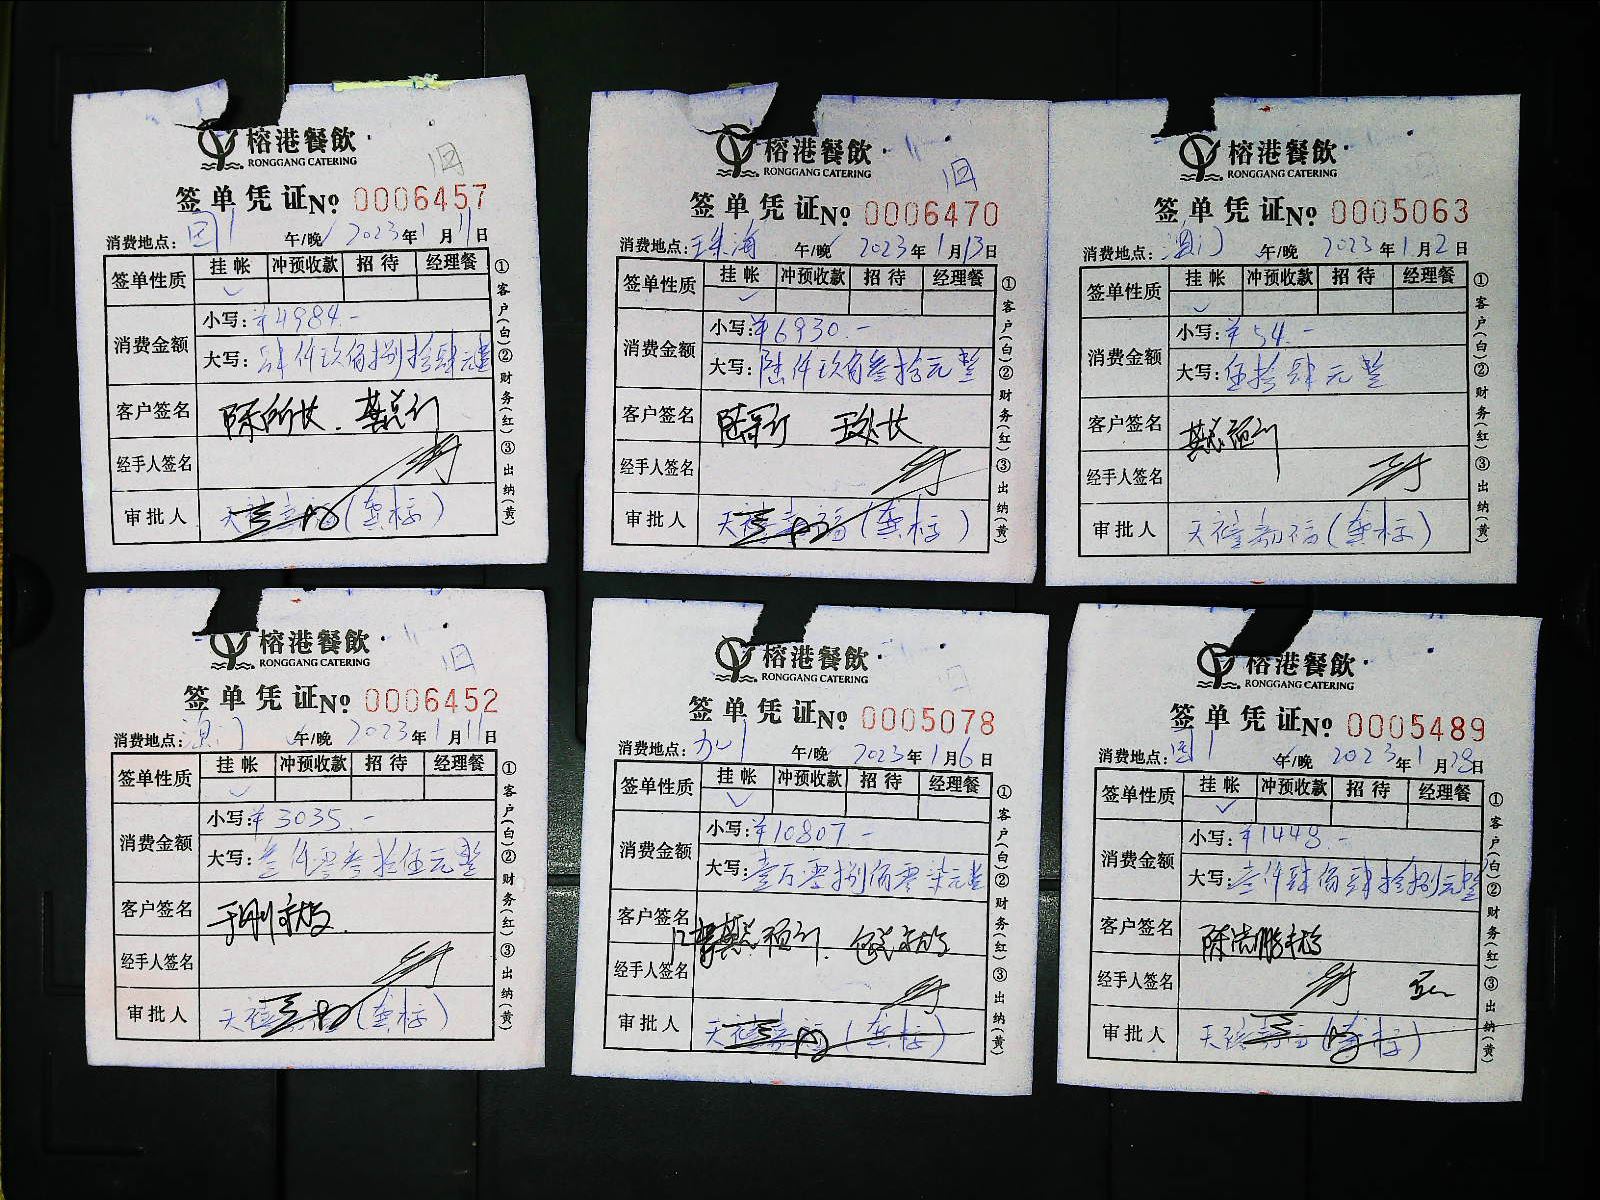 榕港餐飲
RONGGANG CATERING
旧
签单凭证№ 0006457
消费地点： 午/晚 2023年1月11日
签单性质 挂帐 冲预收款 招待 经理餐
消费金额 小写：¥4984.-
大写：肆仟玖佰捌拾肆元整
客户签名 陈所长. 龚总订
经手人签名
审批人 天禧嘉福(龚标)
①客户(白)②财务(红)③出纳(黄)
榕港餐飲
RONGGANG CATERING
旧
签单凭证№ 0006470
消费地点：珠海 午/晚 2023年1月13日
签单性质 挂帐 冲预收款 招待 经理餐
消费金额 小写：¥6930.-
大写：陆仟玖佰叁拾元整
客户签名
经手人签名
审批人 天禧嘉福(龚标)
①客户(白)②财务(红)③出纳(黄)
榕港餐飲
RONGGANG CATERING
签单凭证№ 0005063
消费地点：澳门 午/晚 2023年1月2日
签单性质 挂帐 冲预收款 招待 经理餐
消费金额 小写：¥54.-
大写：伍拾肆元整
客户签名 龚总预订
经手人签名
审批人 天禧嘉福(龚标)
①客户(白)②财务(红)③出纳(黄)
榕港餐飲
RONGGANG CATERING
旧
签单凭证№ 0006452
消费地点：澳门 午/晚 2023年1月11日
签单性质 挂帐 冲预收款 招待 经理餐
消费金额 小写：¥3035.-
大写：叁仟零叁拾伍元整
客户签名
经手人签名
审批人 天禧嘉福(龚标)
①客户(白)②财务(红)③出纳(黄)
榕港餐飲
RONGGANG CATERING
签单凭证№ 0005078
消费地点： 午/晚 2023年1月6日
签单性质 挂帐 冲预收款 招待 经理餐
消费金额 小写：¥10807.-
大写：壹万零捌佰零柒元整
客户签名 龚总预订.
经手人签名
审批人 天禧嘉福(龚标)
①客户(白)②财务(红)③出纳(黄)
榕港餐飲
RONGGANG CATERING
签单凭证№ 0005489
消费地点： 午/晚 2023年1月28日
签单性质 挂帐 冲预收款 招待 经理餐
消费金额 小写：¥1448.-
大写：壹仟肆佰肆拾捌元整
客户签名
经手人签名
审批人 天禧嘉福(龚标)
①客户(白)②财务(红)③出纳(黄)